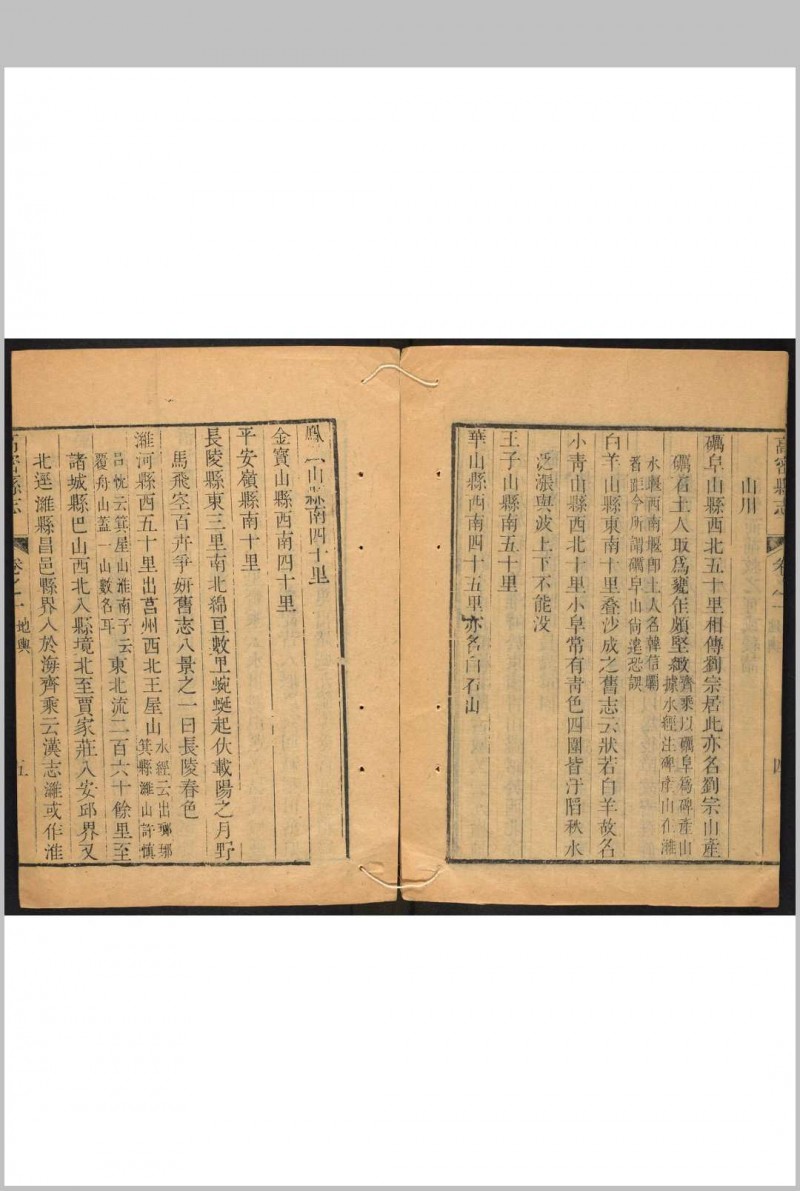 高密縣志
卷之一
四
山川
礪阜山縣西北五十里相傳劉宗居此亦名劉宗山產
礪石土人取爲甕仛頗堅緻齊乘以礪阜爲碑產山
據水經注碑產山在濰
水堰西南堰卽土人名韓信壩
者距今所謂礪阜山尙遠恐誤
白羊山縣東南十里叠沙成之舊志云狀若白羊故名
小青山縣西北十里小阜常有靑色四圍皆汙陷秋水
泛漲與波上下不能没
王子山縣南五十里
華山縣西南四十五里亦名白石山
南四十里
金寶山縣西南四十里
平安嶺縣南十里
長陵縣東三里南北綿亘數里蜿蜒起伏載陽之月野
馬飛空百卉爭妍舊志八景之一曰長陵春色
濰河縣西五十里出莒州西北王屋山
水經云出瑯琊
箕縣濰山許愼
呂忱云箕屋山淮南子云
覆舟山蓋一山數名耳
東北流二百六十餘里至
諸城縣巴山西北入縣境北至賈家莊入安邱界又
北逕濰縣昌邑縣界入於海齊乘云漢志濰或作淮
高密縣志
卷之一
地輿
五